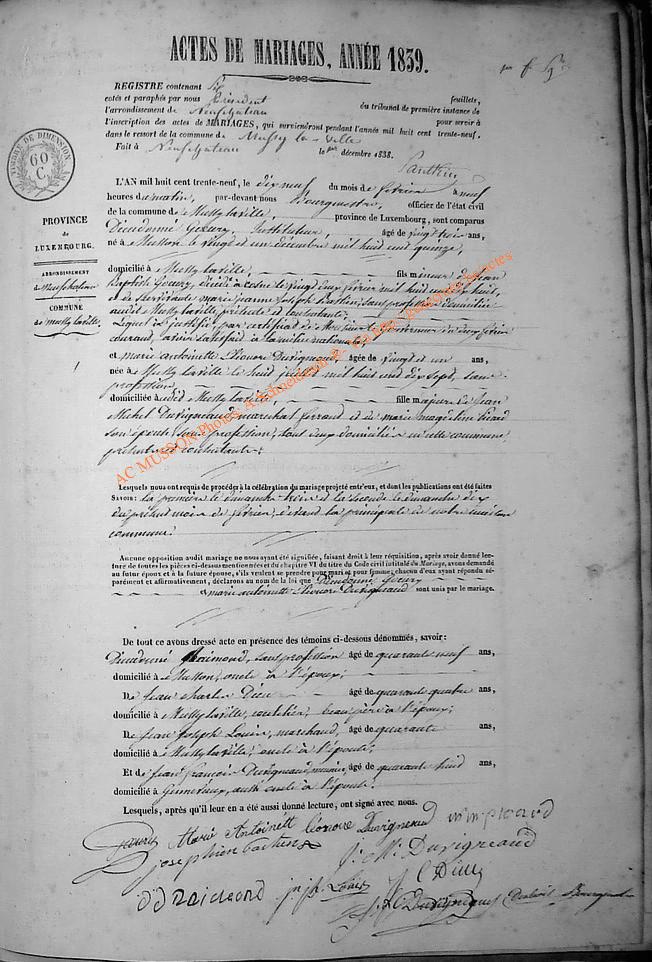 ACTES DE MARIAGES, ANNÉE 1839.
REGISTRE contenant Six feuillets,
cotés et paraphés par nous Président du tribunal de première instance de
l'arrondissement de Neufchateau pour servir à
l'inscription des actes de MARIAGES, qui surviendront pendant l'année mil huit cent trente-neuf,
dans le ressort de la commune de Mussy la Ville
Fait à Neufchateau le décembre 1838.
TIMBRE DE DIMENSION
60
C.
PROVINCE
DE
LUXEMBOURG.
ARRONDISSEMENT
de Neufchateau
COMMUNE
de Mussy laville.
L'AN mil huit cent trente-neuf, le dix neuf du mois de février à neuf
heures du matin, par-devant nous Bourgmestre, officier de l'état civil
de la commune de Mussy laville, province de Luxembourg, sont comparus
Dieudonné Goeury, Instituteur, âgé de vingt trois ans,
né à Musson le vingt et un décembre mil huit cent quinze,
domicilié à Mussy laville, fils mineur de Jean
Baptiste Goeury, décédé à le vingt deux février mil huit cent dix huit,
et de survivante marie jeanne Joseph Bastin, sans profession domiciliée
audit Mussy laville présente et consentante;
Lequel a justifié par certificat de Monsieur le Gouverneur du deux février
courant, avoir satisfait à la milice nationale.
et marie antoinette Léonore Duvigneaud, âgée de vingt et un ans,
née à Mussy laville le huit mil huit cent dix sept, sans
profession,
domiciliée audit Mussy laville, fille majeure de Jean
Michel Duvigneaud, marechal ferrand et de marie magdeleine
son épouse, sans profession, tout deux domiciliés en cette commune,
présents et consentants;
Lesquels nous ont requis de procéder à la célébration du mariage projeté entr'eux, et dont les publications ont été faites
SAVOIR: la première le dimanche trois et la seconde le dimanche dix
du présent mois de février, devant la principale de notre maison
commune.
Aucune opposition audit mariage ne nous ayant été signifiée, faisant droit à leur réquisition, après avoir donné lec-
ture de toutes les pièces ci-dessus mentionnées et du chapitre VI du titre du Code civil intitulé du Mariage, avons demandé
au futur époux et à la future épouse, s'ils veulent se prendre pour mari et pour femme; chacun d'eux ayant répondu sé-
parément et affirmativement, déclarons au nom de la loi que Dieudonné Goeury
& marie antoinette Léonore Duvigneaud sont unis par le mariage.
De tout ce avons dressé acte en présence des témoins ci-dessous dénommés, savoir:
Dieudonné Raimond, sans profession âgé de quarante neuf ans,
domicilié à Musson, oncle à l'époux;
De Jean Charles Dieu âgé de quarante quatre ans,
domicilié à Mussy laville, beau père à l'époux;
De Jean Joseph Louis, marchand, âgé de quarante ans,
domicilié à Mussy laville, oncle à l'épouse;
Et de Jean françois Duvigneaud, âgé de quarante huit ans,
domicilié à oncle à l'épouse.
Lesquels, après qu'il leur en a été aussi donné lecture, ont signé avec nous.
Goeury Marie Antoinett Léonore Duvigneaud
J. M. Duvigneaud
J C Dieu
D D Raimond jn jh Louis
AC MUSSON Photos